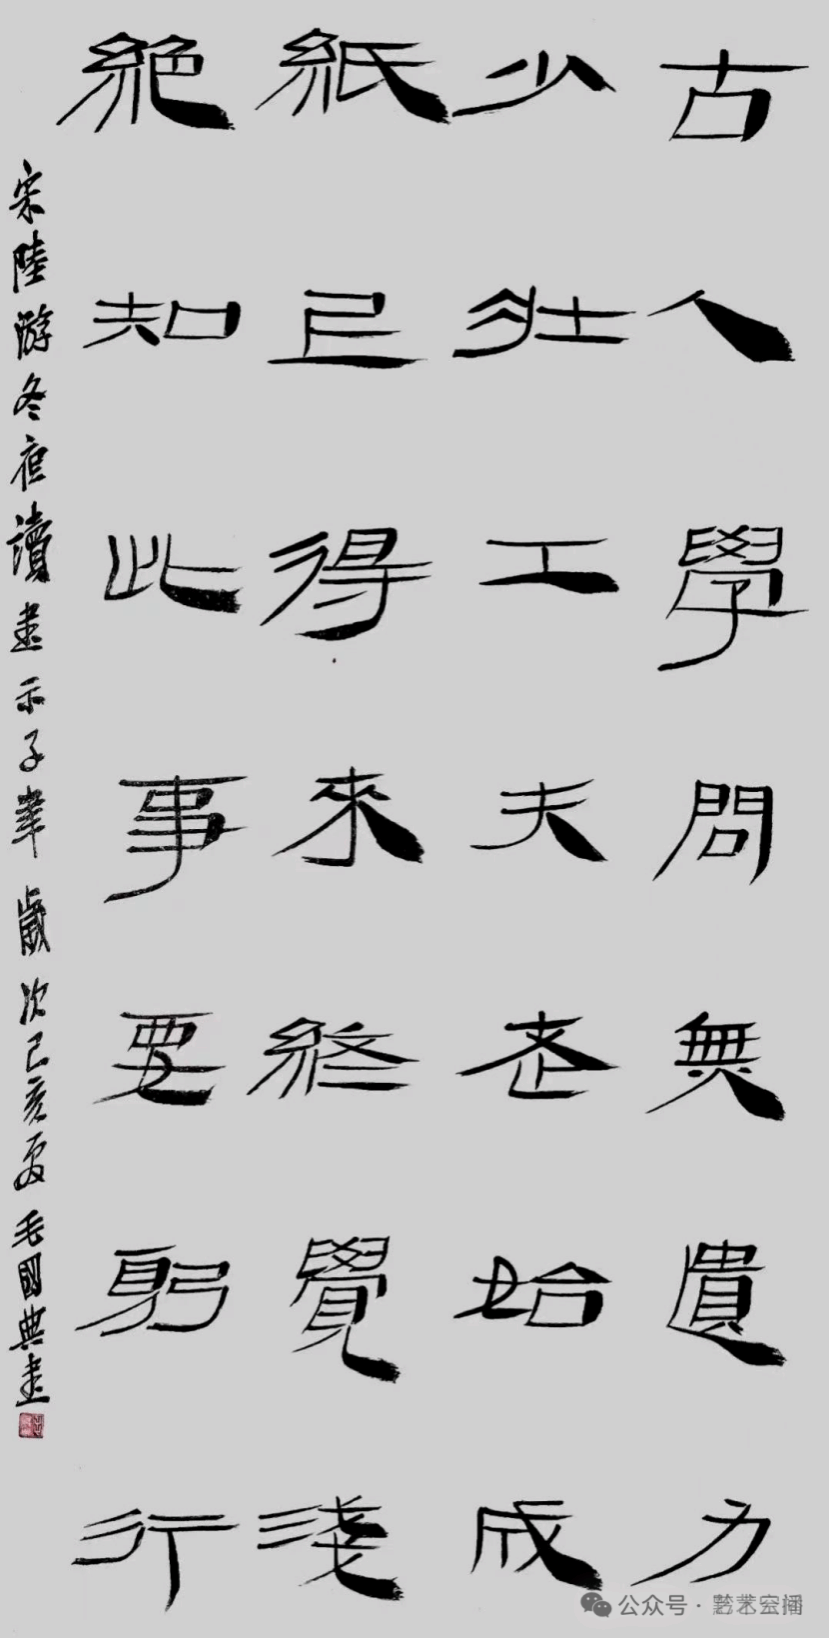 古人學問無遺力
少壯工夫老始成
紙得來終覺淺
絕知此事要躬行
宋陸游冬夜讀書示子聿 歲次己亥夏 毛國典書
公众号 ·